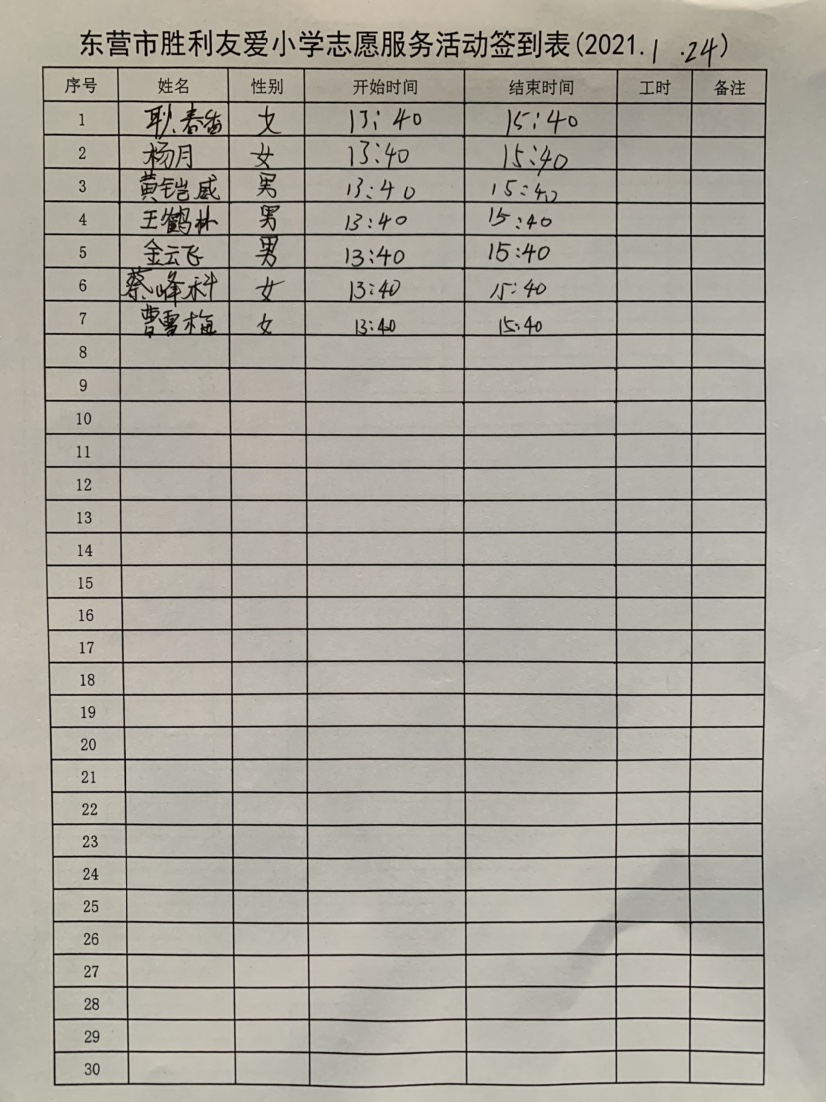 东营市胜利友爱小学志愿服务活动签到表(2021.1.24)
序号 姓名 性别 开始时间 结束时间 工时 备注
1 耿春香 女 13:40 15:40
2 杨月 女 13:40 15:40
3 黄铠威 男 13:40 15:40
4 王鹤林 男 13:40 15:40
5 金云飞 男 13:40 15:40
6 蔡峰科 女 13:40 15:40
7 曹雪梅 女 13:40 15:40
8
9
10
11
12
13
14
15
16
17
18
19
20
21
22
23
24
25
26
27
28
29
30